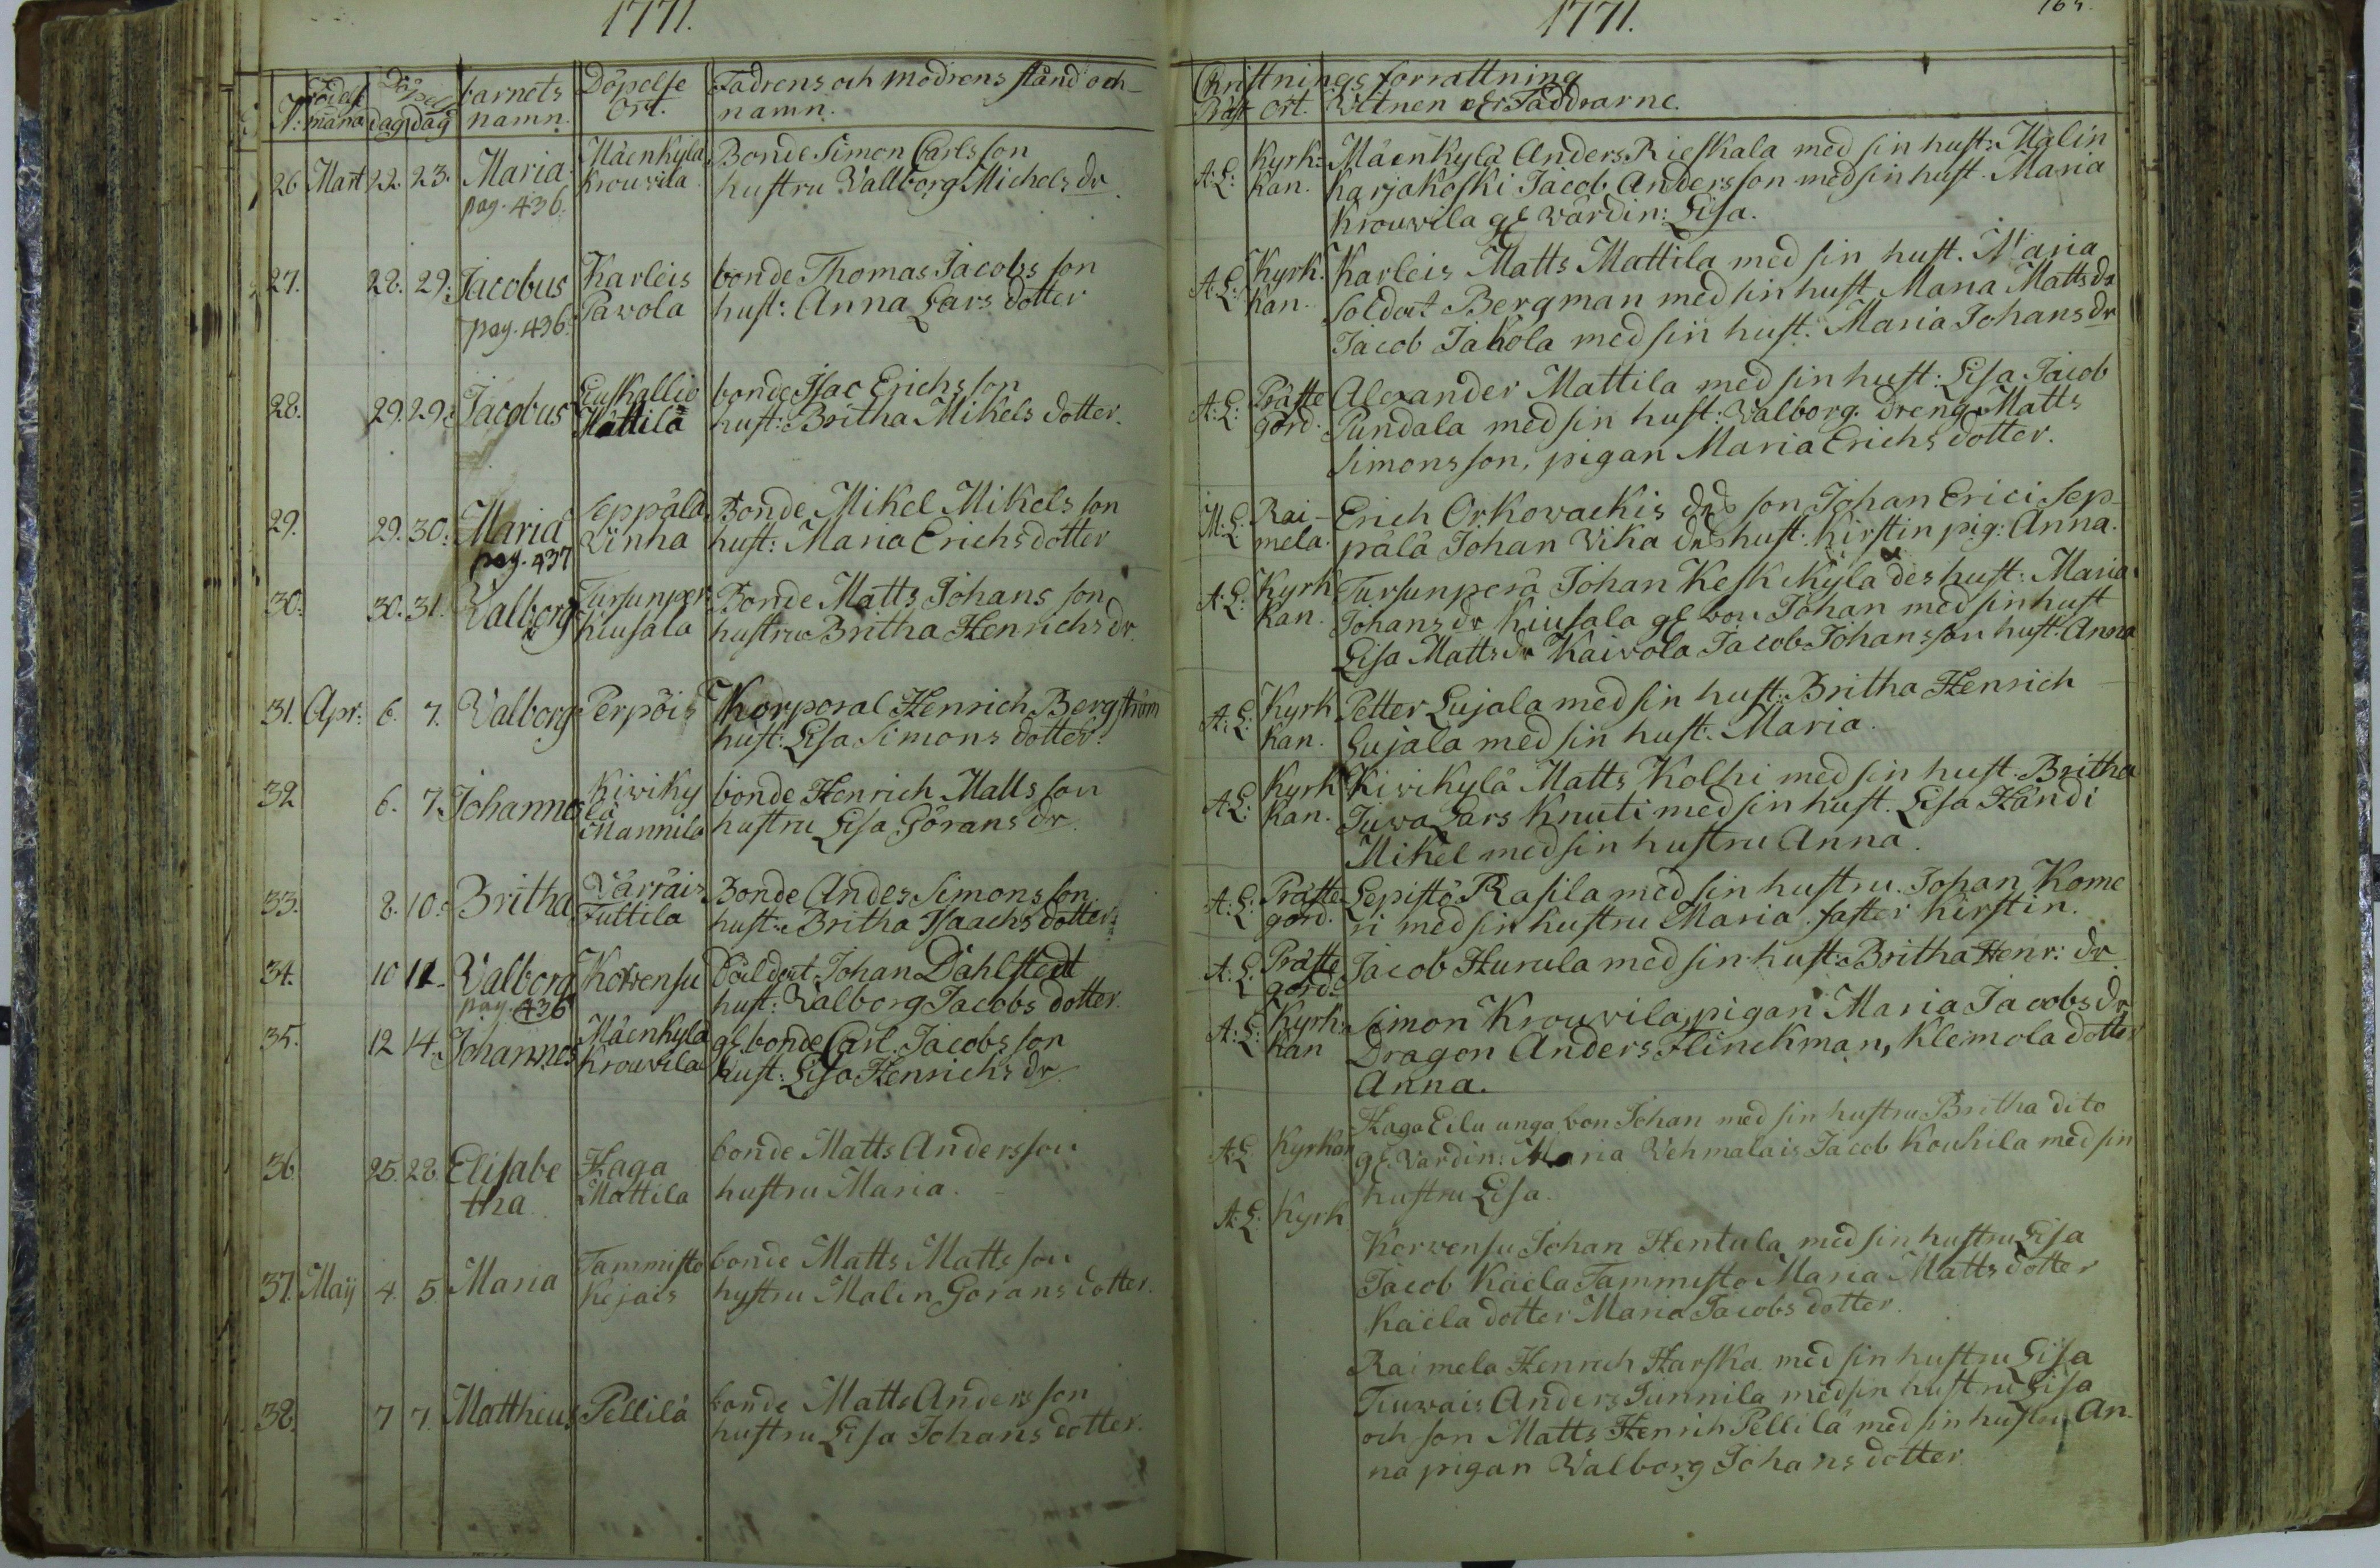 1771.
N: Födelse månad dag Döpelse dag barnets namn. Döpelse Ort. Fadrens och modrens stånd och namn.
26 Mart 22. 23. Maria. Mäenkylä Bonde Simon Carls son
pag. 436. Krouvila hustru Vallborg Michels dr.
27. 28. 29. Jacobus Karleis bonde Thomas Jacobs son
pag. 436. Pavola hust: Anna Lars dotter
28. 29. 29. Jacobus bonde Isac Erichs son
Mattila hust: Britha Mikels dotter.
29. 29. 30. Maria Seppälä Bonde Mikel Mikels son
pag. 437 Vinha hust: Maria Erichs dotter
30. 30. 31. Valborg Tursunper Bonde Matts Johans son
Kiusala hustru Britha Henrichs dr.
31. Apr: 6. 7. Valborg Perpöis Korporal Henrich Bergström
hust: Lisa Simons dotter.
32 6. 7. Johannes Kiviky bonde Henrich Matts son
lä Mannila hustru Lisa Görans dr.
33. 8. 10. Britha Värräis Bonde Andes Simons son
Tuttila hust: Britha Isaachs dotter.
34. 10 11. Valborg Korvensu Soldat Johan Dahlstedt
pag. 436 hust: Valborg Jacobs dotter.
35. 12 14. Johannes Mäenkylä gl bonde Carl Jacobs son
Krouvila hust: Lisa Henrichs dr.
36. 25. 28. Elisabe Haga bonde Matts Andersson
tha Mattila hustru Maria.
37. Maij 4. 5. Maria Tammisto bonde Matts Matts son
Kejais hustru Malin Görans dotter.
38. 7 7. Mattheus Pellilä bonde Matts Anders son
hustru Lisa Johans dotter.
1771.
Christnings förrättning
Präst Ort. Vittnen eller Faddrarne.
A: L: Kyrk: Mäenkylä Anders Rieskala med sin hust: Malin
kan. Karjakoski Jacob Andersson med sin hust. Maria
Krouvila gl värdin: Lisa.
A: L: Kyrk. Karleis Matts Mattila med sin hust. Maria
kan. Soldat Bergman med sin hust Maria Matts dr
Jacob Jakola med sin hust. Maria Johans dr
A: L: Präste Alexander Mattila med sin hust: Lisa Jacob
gård. Pundala med sin hust: Valborg. dreng Matts
Simonsson, pigan Maria Erichs dotter.
M: L: Rai- Erich Orkovackis son Johan Erici Sep-
mela. pälä Johan Vika hust: Kirstin pig: Anna.
A: L: Kyrk Tursunperä Johan Keskikylä des hust: Maria
kan. Johans dr Kiusala gl bon Johan med sin hust
Lisa Matts dr Kaivola Jacob Johansson hust: Anna
A: L: Kyrk Petter Lujala med sin hust: Britha Henrich
kan. Lujala med sin hust: Maria.
A: L: Kyrk Kivikylä Matts Kolhi med sin hust. Britha
kan. Juva Lars Knuti med sin hust. Lisa Händi
Mikel med sin hustru Anna.
A: L: Präste Lepistö Rasila med sin hustru. Johan Kome
gård. ri med sin hustru Maria. faster Kirstin.
A: L: Präste Jacob Hurula med sin hust: Britha Henr: dr
gård.
A: L: Kyrk: Simon Krouvila, pigan Maria Jacobs dr
kan Dragon Anders Flinckman, Kleimola dotter
Anna.
Haga Eilu unga bon Johan med sin hustru Britha dito
A: L Kyrkan gl. Värdin: Maria Vehmalais Jacob Kouhila med sin
hustru Lisa.
A: L: Kyrk
Korvensu Johan Hentula med sin hustru Lisa
Jacob Käelä Tammisto Maria Matts dotter
Käelä dotter Maria Jacobs dotter.
Raimela Henrich Harska med sin hustru Lisa
Tuuvais Anders Junnila med sin hustru Lisa
och son Matts Henrih Pellilä med sin hustru An-
na pigan Valborg Johans dotter